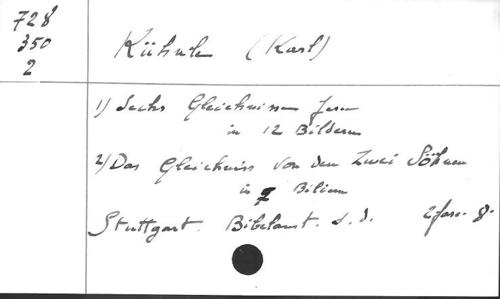 728
350
2
Kühnle (Karl)
1) Sechs Gleichnisse Jesu
in 12 Bildern
2) Das Gleichniss von den zwei Söhnen
in 7
Stuttgart. Bibelanst. s. d. 2 fasc. 8°